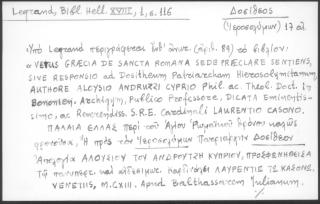 Legrand, Bibl. Hell. XVIII, 1, σ. 116
Δοσίθεος
(Ἱεροσολύμων) 17 αἰ.
Ὑπὸ Legrand περιγράφεται ὑπ' ἀριθ. 89) τὸ βιβλίον:
« VETUS GRÆCIA DE SANCTA ROMANA SEDE PRÆCLARE SENTIENS,
SIVE RESPONSIO ad Dositheum Patriarcham Hierosolymitanum,
AUTHORE ALOYSIO ANDRUZZI CYPRIO Phil. ac Theol. Doct. In
Bononien. Archigym, Publico Professore, DICATA Eminentis-
simo, ac Reverendiss. S.R.E. Cardinali LAURENTIO CASONO.
ΠΑΛΑΙΑ ΕΛΛΑΣ περὶ τοῦ Ἁγίου Ῥωμαϊκοῦ θρόνου καλῶς
φρονοῦσα, Ἡ πρὸς τὸν Ἱεροσολύμων Πατριάρχην ΔΟΣΙΘΕΟΝ
Ἀπολογία ΑΛΟΥΣΙΟΥ ΤΟΥ ΑΝΔΡΟΥΤΖΗ ΚΥΠΡΙΟΥ, ΠΡΟΣΦΩΝΗΘΕΙΣΑ
Τῷ καὶ ΛΑΥΡΕΝΤΙῼ Τῼ ΚΑΣΟΝΕ.
VENETIIS, M.CXIII. Apud Balthassarem Julianum.